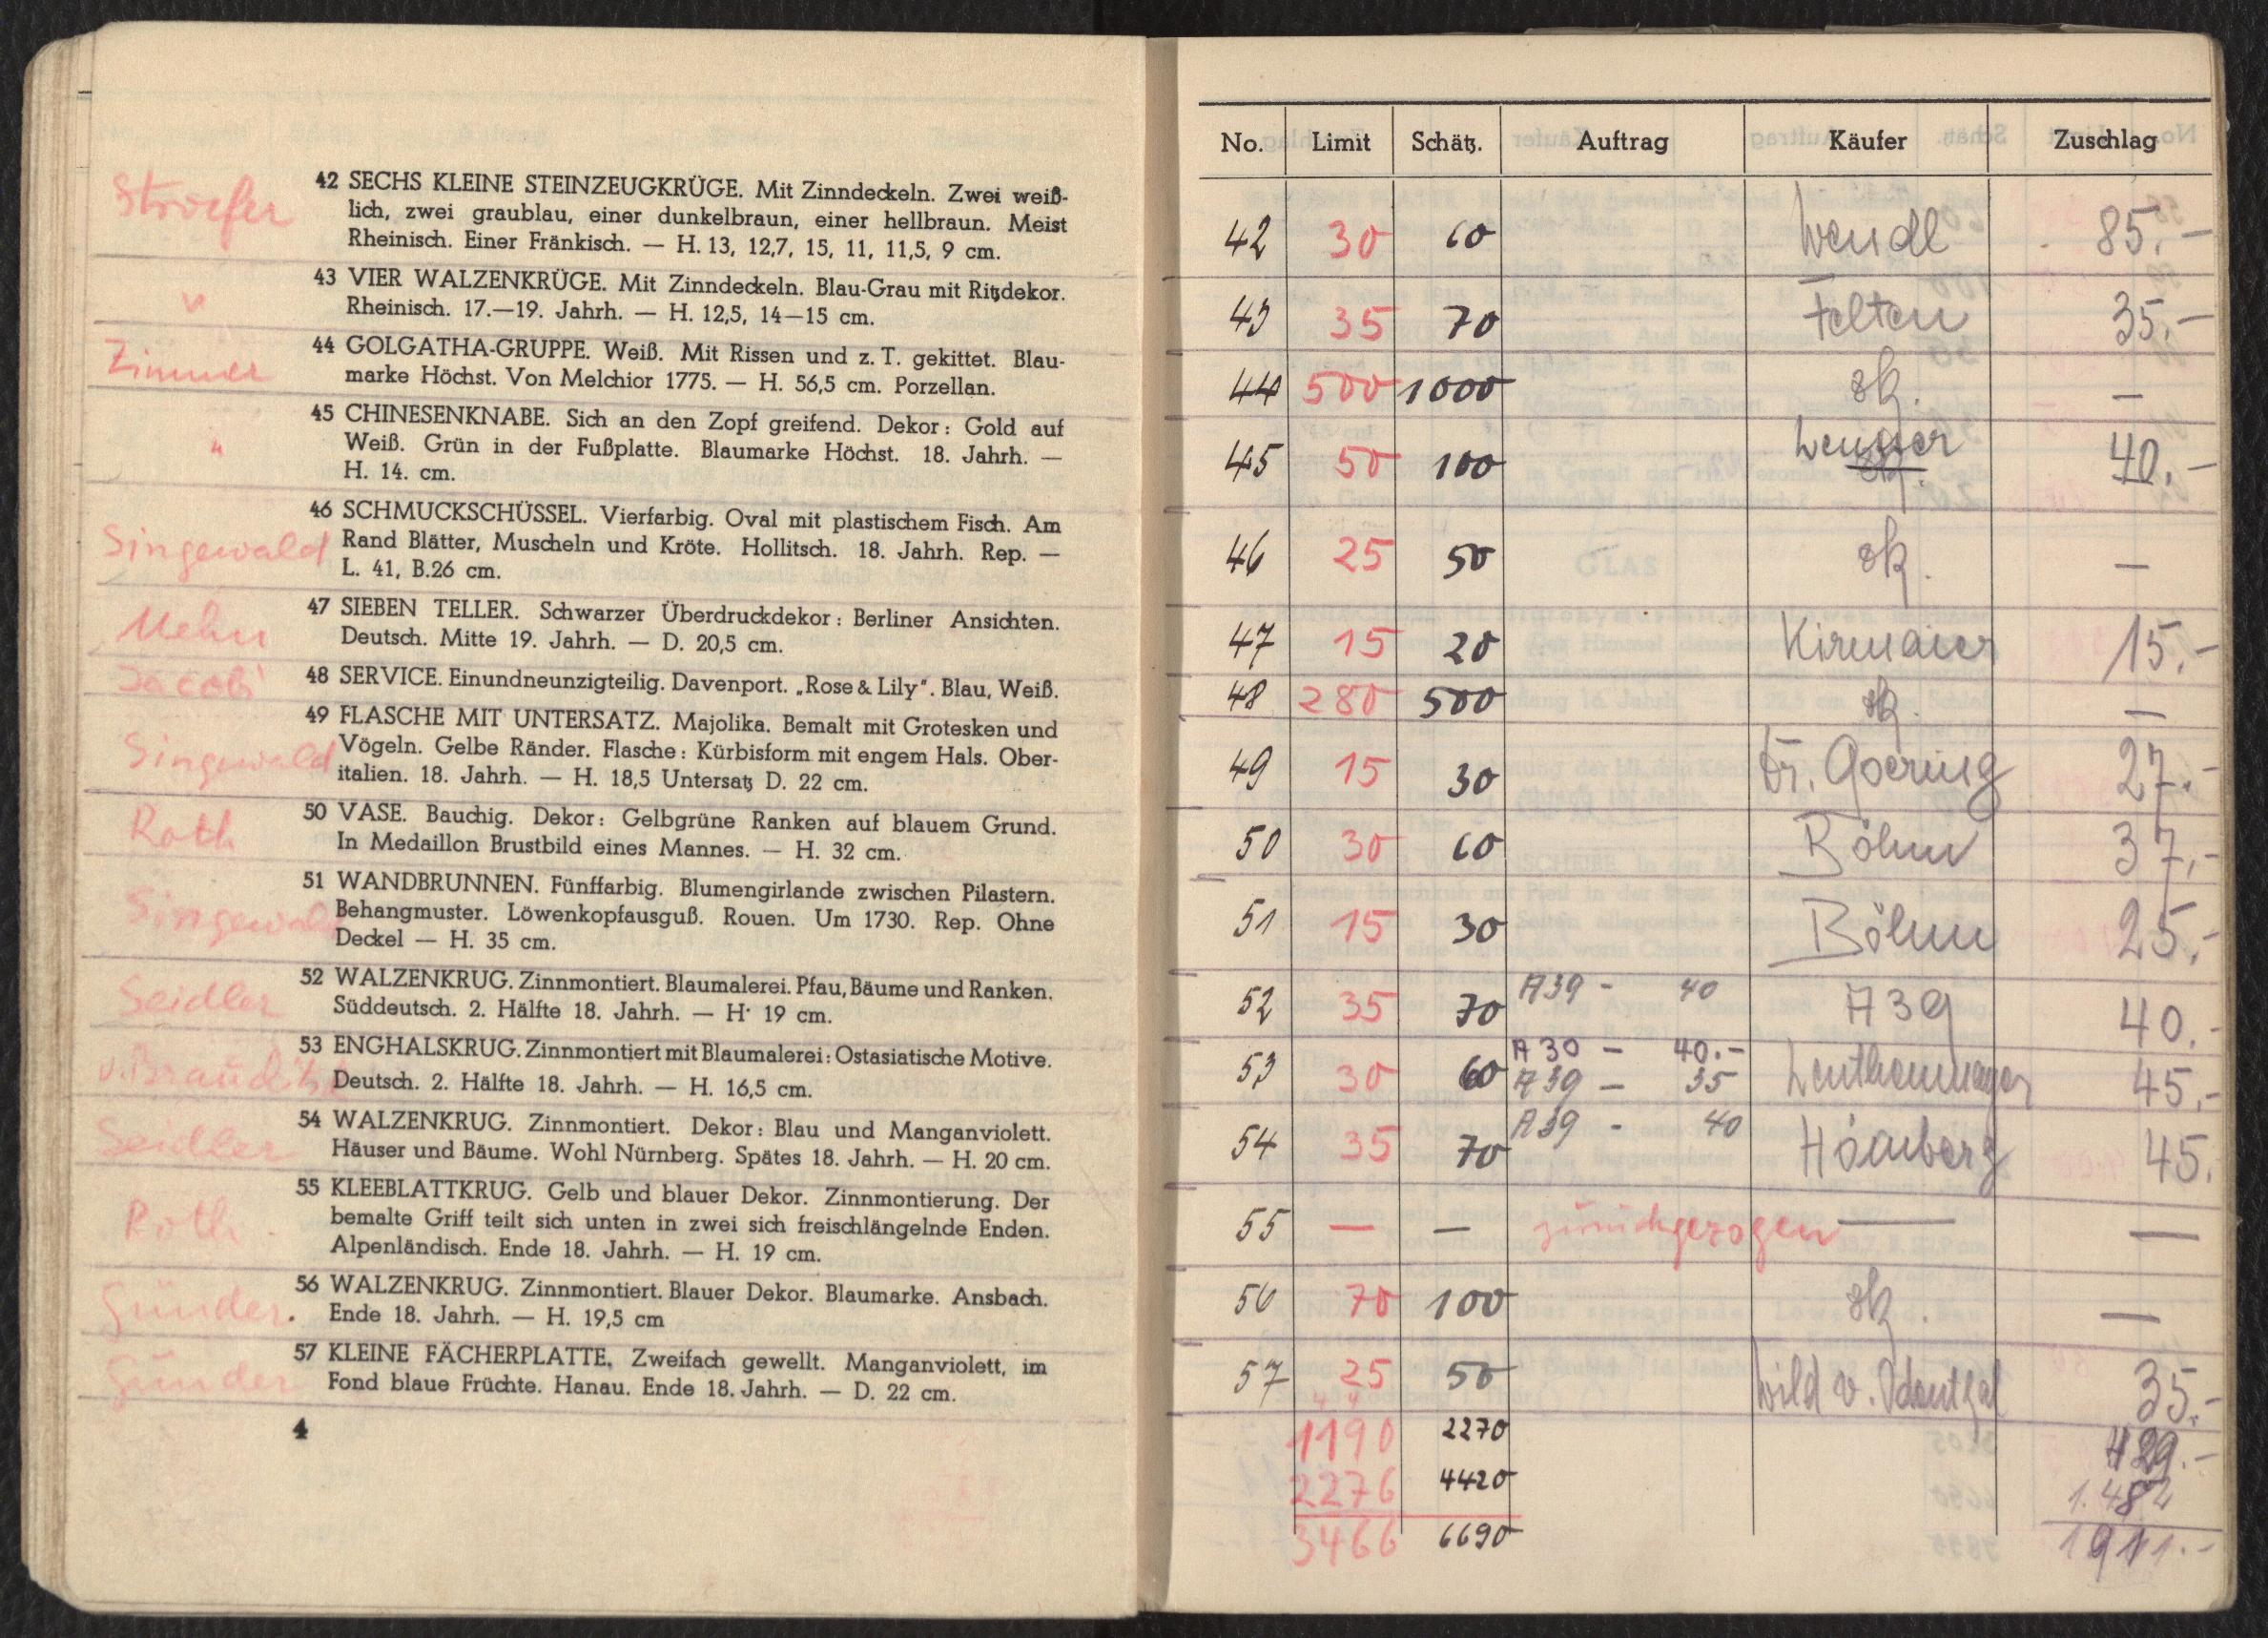 Stroefer
42 SECHS KLEINE STEINZEUGKRÜGE. Mit Zinndeckeln. Zwei weiß-
lich, zwei graublau, einer dunkelbraun, einer hellbraun. Meist
Rheinisch. Einer Fränkisch. — H. 13, 12,7, 15, 11, 11,5, 9 cm.
"
43 VIER WALZENKRÜGE. Mit Zinndeckeln. Blau-Grau mit Ritzdekor.
Rheinisch. 17.—19. Jahrh. — H. 12,5, 14—15 cm.
Zimmer
44 GOLGATHA-GRUPPE. Weiß. Mit Rissen und z. T. gekittet. Blau-
marke Höchst. Von Melchior 1775. — H. 56,5 cm. Porzellan.
"
45 CHINESENKNABE. Sich an den Zopf greifend. Dekor: Gold auf
Weiß. Grün in der Fußplatte. Blaumarke Höchst. 18. Jahrh. —
H. 14. cm.
Singewald
46 SCHMUCKSCHÜSSEL. Vierfarbig. Oval mit plastischem Fisch. Am
Rand Blätter, Muscheln und Kröte. Hollitsch. 18. Jahrh. Rep. —
L. 41, B.26 cm.
47 SIEBEN TELLER. Schwarzer Überdruckdekor: Berliner Ansichten.
Deutsch. Mitte 19. Jahrh. — D. 20,5 cm.
Jacobi
48 SERVICE. Einundneunzigteilig. Davenport. „Rose & Lily". Blau, Weiß.
Singewald
49 FLASCHE MIT UNTERSATZ. Majolika. Bemalt mit Grotesken und
Vögeln. Gelbe Ränder. Flasche: Kürbisform mit engem Hals. Ober-
italien. 18. Jahrh. — H. 18,5 Untersatz D. 22 cm.
Roth
50 VASE. Bauchig. Dekor: Gelbgrüne Ranken auf blauem Grund.
In Medaillon Brustbild eines Mannes. — H. 32 cm.
Singewald
51 WANDBRUNNEN. Fünffarbig. Blumengirlande zwischen Pilastern.
Behangmuster. Löwenkopfausguß. Rouen. Um 1730. Rep. Ohne
Deckel — H. 35 cm.
Seidler
52 WALZENKRUG. Zinnmontiert. Blaumalerei. Pfau, Bäume und Ranken.
Süddeutsch. 2. Hälfte 18. Jahrh. — H· 19 cm.
53 ENGHALSKRUG. Zinnmontiert mit Blaumalerei: Ostasiatische Motive.
Deutsch. 2. Hälfte 18. Jahrh. — H. 16,5 cm.
Seidler
54 WALZENKRUG. Zinnmontiert. Dekor: Blau und Manganviolett.
Häuser und Bäume. Wohl Nürnberg. Spätes 18. Jahrh. — H. 20 cm.
Roth
55 KLEEBLATTKRUG. Gelb und blauer Dekor. Zinnmontierung. Der
bemalte Griff teilt sich unten in zwei sich freischlängelnde Enden.
Alpenländisch. Ende 18. Jahrh. — H. 19 cm.
Günder.
56 WALZENKRUG. Zinnmontiert. Blauer Dekor. Blaumarke. Ansbach.
Ende 18. Jahrh. — H. 19,5 cm
Günder
57 KLEINE FÄCHERPLATTE. Zweifach gewellt. Manganviolett, im
Fond blaue Früchte. Hanau. Ende 18. Jahrh. — D. 22 cm.
4
No. Limit Schätz. Auftrag Käufer Zuschlag
42 30 60 Wendl 85.—
43 35 70 Felten 35.—
44 500 1000 zk. —
45 50 100 40.—
46 25 50 zk. —
47 15 20 Kirmaier 15.—
48 280 500 zk. —
49 15 30 Dr. Goering 27.-
50 30 60 Böhm 37.-
51 15 30 Böhm 25.-
52 35 70 A39 - 40 A39 40.-
A30 — 40.-
53 30 60 A39 — 35 45.-
54 35 70 A39 - 40 45.
55 — — zurückgezogen — —
56 70 100 zk. —
57 25 50 Wild v. 35.-
1190 2270 429.-
2276 4420 1.482
3466 6690 1911.-